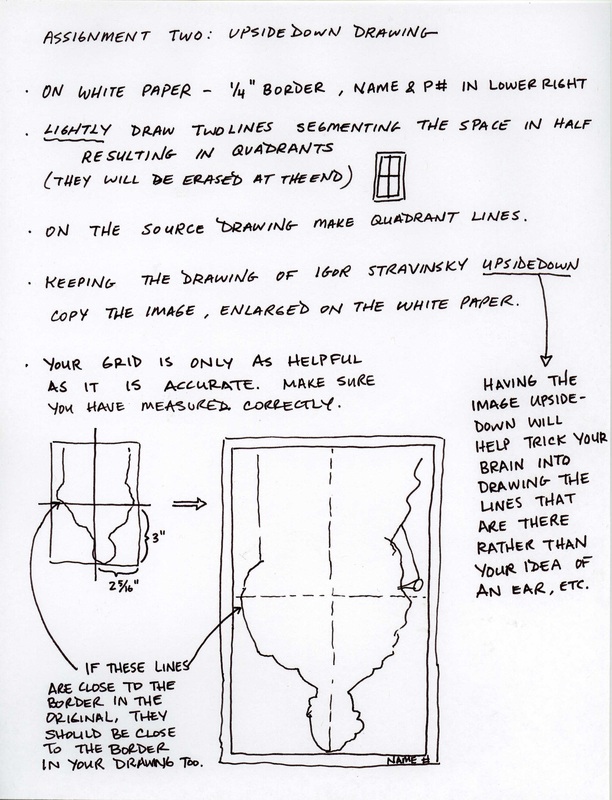 ASSIGNMENT TWO: UPSIDEDOWN DRAWING
· ON WHITE PAPER - 1/4" BORDER, NAME & P# IN LOWER RIGHT
· LIGHTLY DRAW TWO LINES SEGMENTING THE SPACE IN HALF
RESULTING IN QUADRANTS
(THEY WILL BE ERASED AT THE END)
· ON THE SOURCE DRAWING MAKE QUADRANT LINES.
· KEEPING THE DRAWING OF IGOR STRAVINSKY UPSIDEDOWN
COPY THE IMAGE, ENLARGED ON THE WHITE PAPER.
· YOUR GRID IS ONLY AS HELPFUL
AS IT IS ACCURATE. MAKE SURE
YOU HAVE MEASURED CORRECTLY.
HAVING THE
IMAGE UPSIDE-
DOWN WILL
HELP TRICK YOUR
BRAIN INTO
DRAWING THE
LINES THAT
ARE THERE
RATHER THAN
YOUR IDEA OF
AN EAR, ETC.
3"
2 5/16"
IF THESE LINES
ARE CLOSE TO THE
BORDER IN THE
ORIGINAL, THEY
SHOULD BE CLOSE
TO THE BORDER
IN YOUR DRAWING TOO.
NAME #